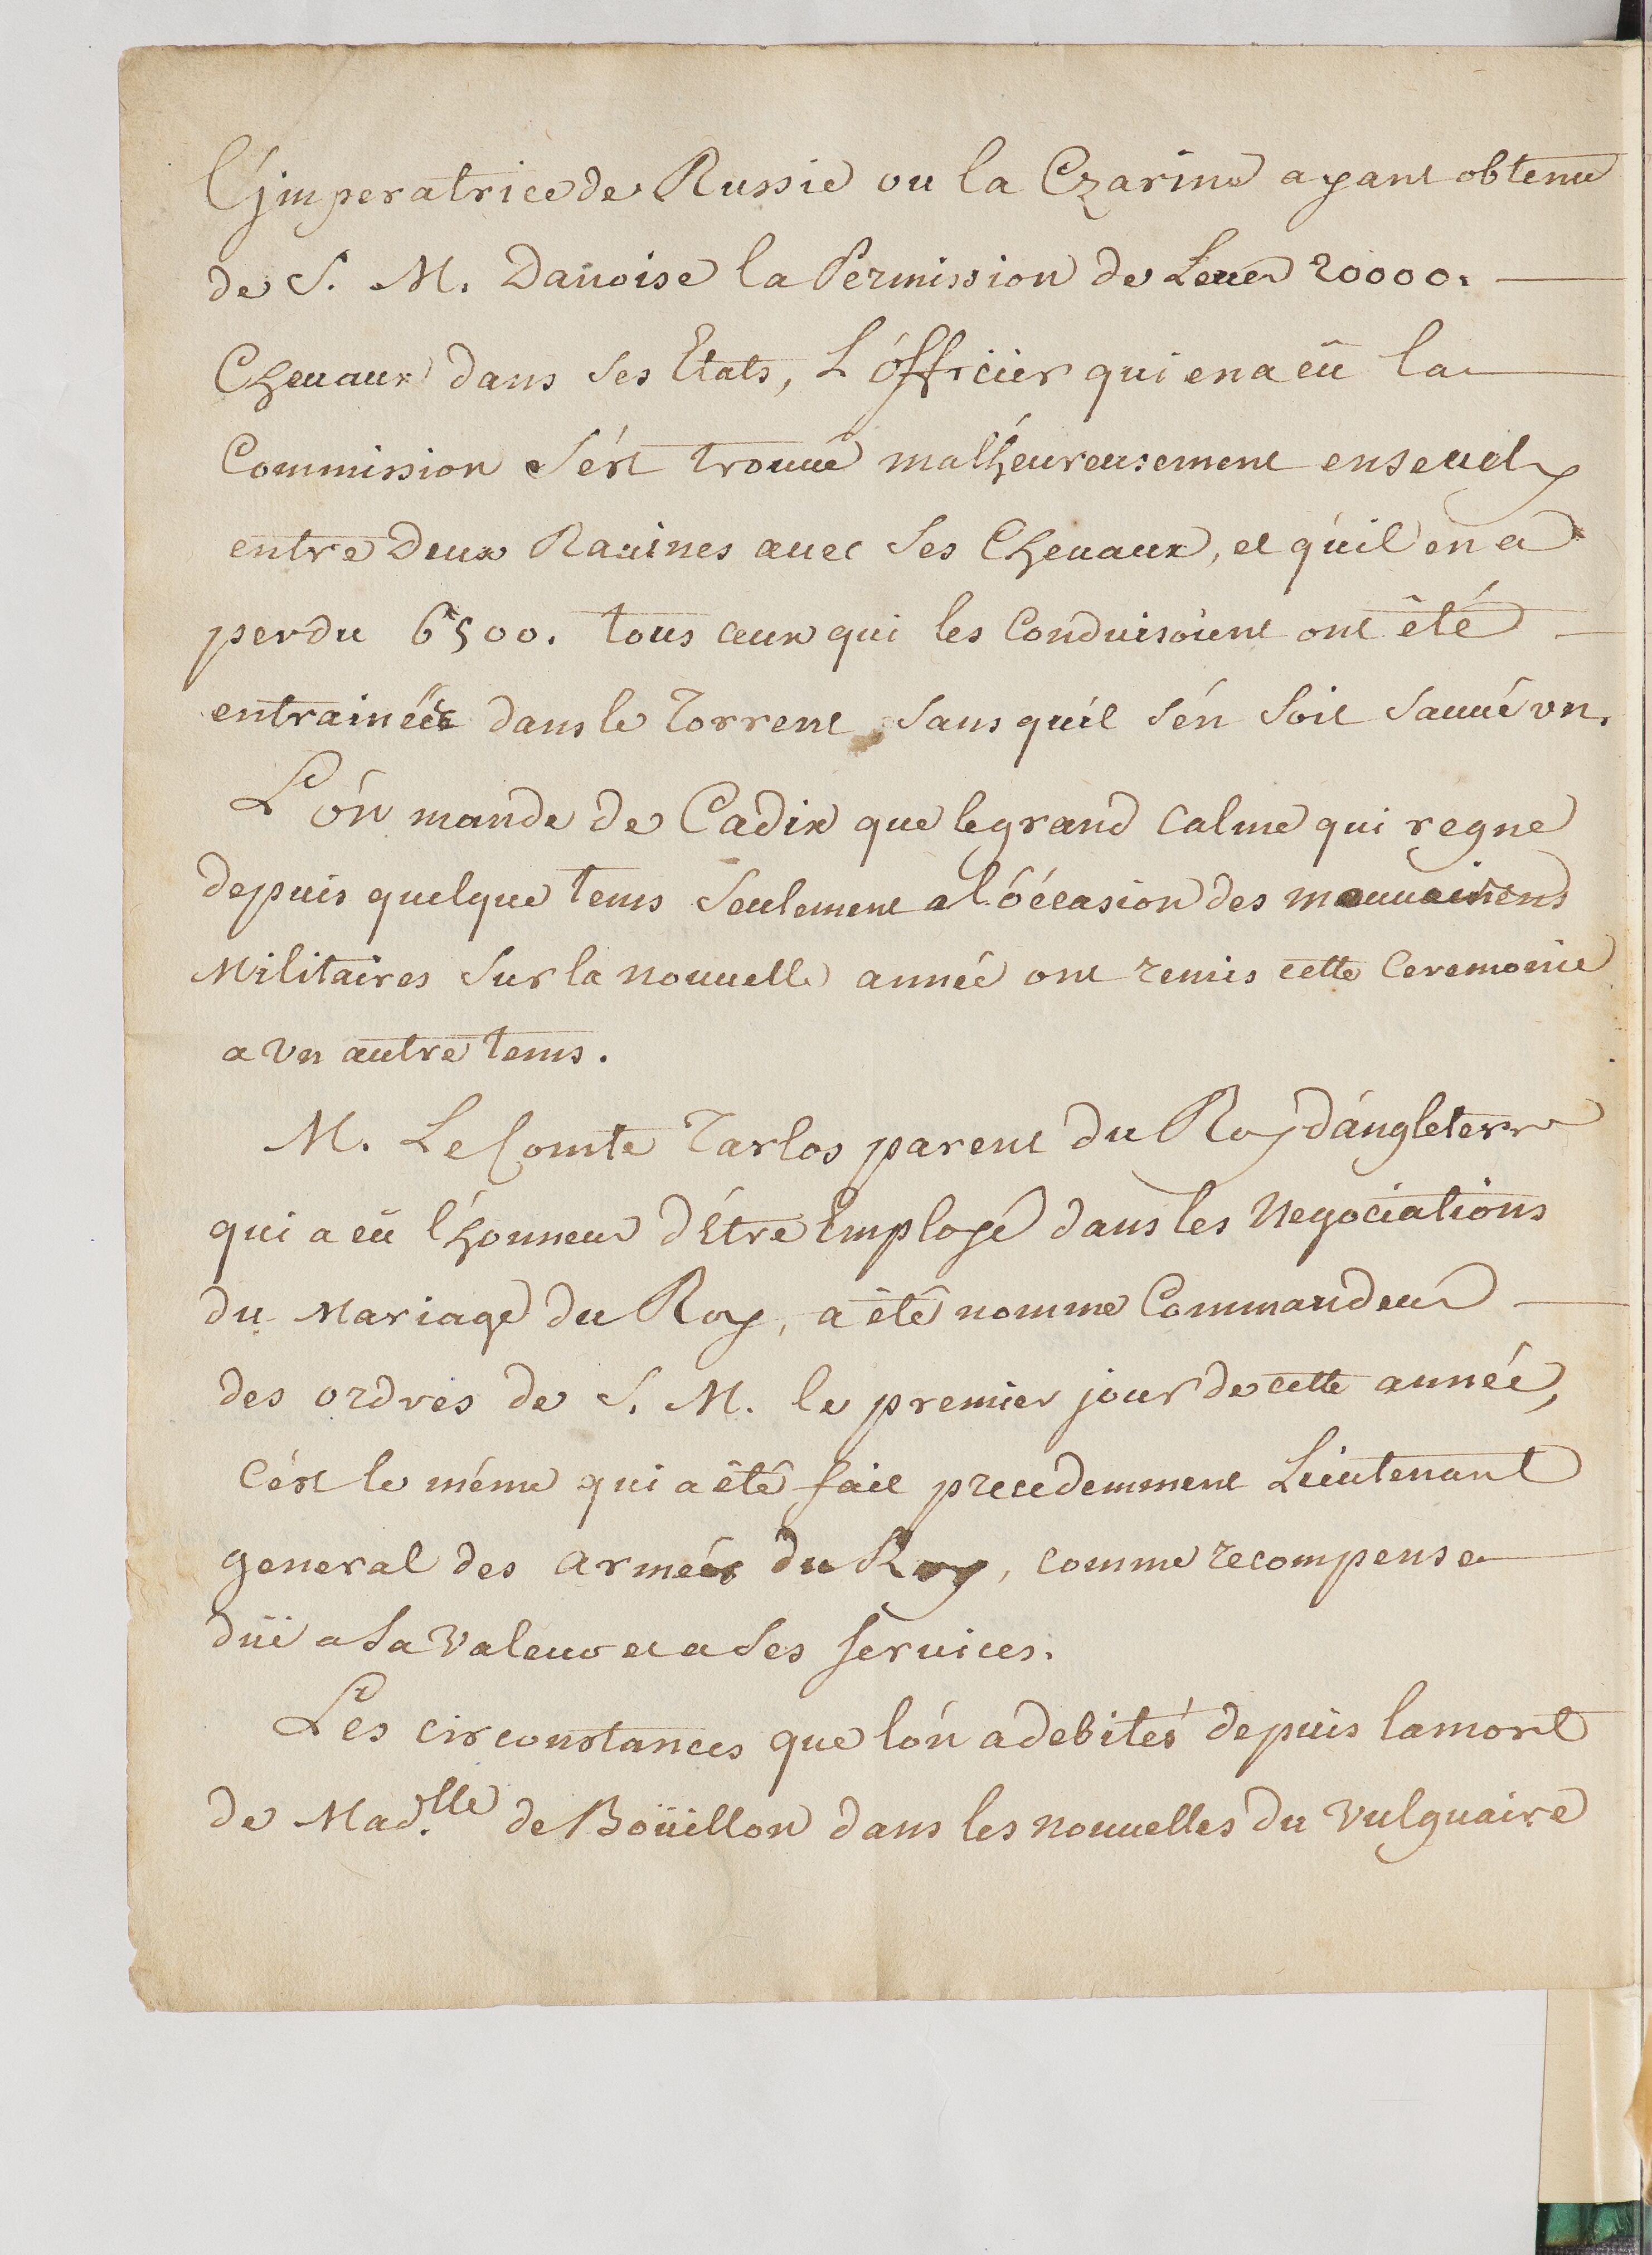 L'jmperatrice de Russie ou la Czarine ayant obtenu
de S. M. Danoise la Permission de Leuer 20000.
Cheuaux dans ses Etats, L'officier qui en a eû la
Commission s'ést trouué malhéureusement enseuely
entre deux Rauines auec ses Cheuaux, et qu'il en a
perdu 6500. tous ceux qui les Conduisoient ont été
entrainéés dans le Torrent sans qu'il s'én soit sauué vn.
L'ón mande de Cadix que le grand calme qui regne
depuis quelque tems seulement a l'óccasion des
Militaires sur la nouuelle année ont remis cette Ceremonie
a vn autre tems.
M. Le Comte Tarlos parent du Roy d'ángleterre
qui a eû l'honneur d'Être Employé dans les Negociations
du Mariage du Roy, a été nomme Commandeur
des ordres de S. M. le premier jour de cette année,
C'ést le méme qui a été fait precedemment Lieutenant
general des armées du Roy, comme recompense
düe a sa valeur et a ses seruices.
Les circonstances que l'ón a debités depuis la mort
de Mad.lle de Boüillon dans les nouuelles du vulguaire